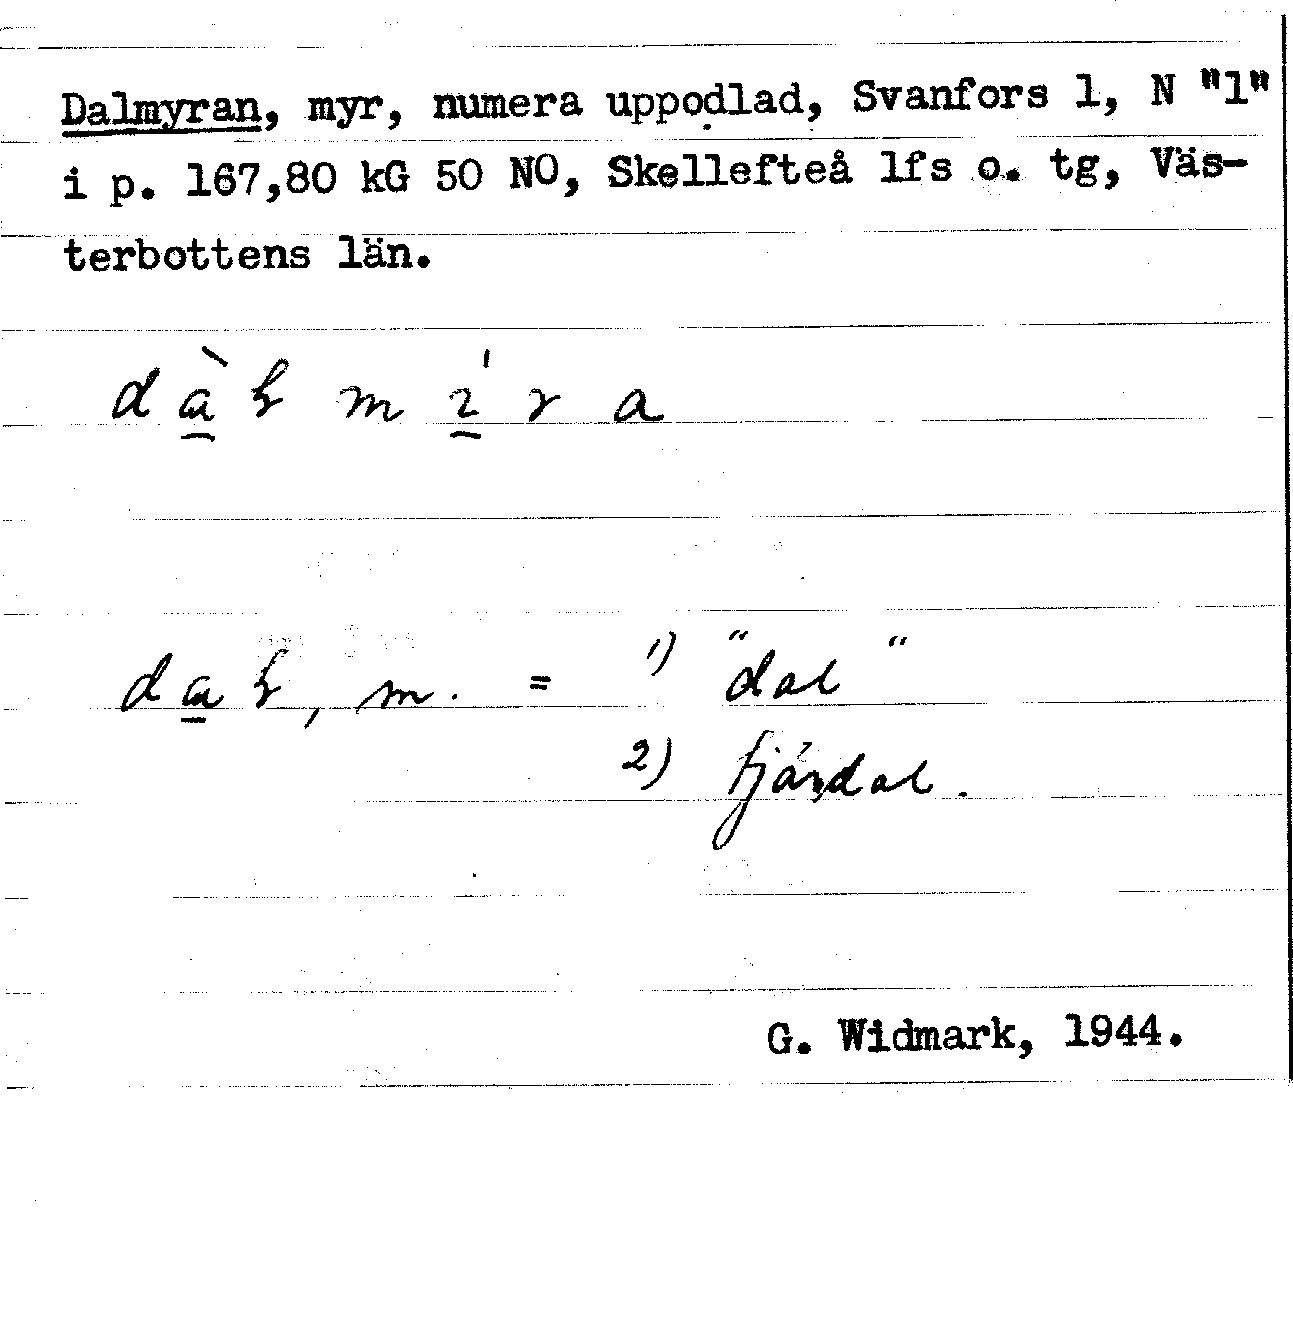 Dalmyran, myr, numera uppodlad, Svanfors 1, N "1"
i p. 167,80 kG 50 NO, Skellefteå lfs o. tg, Väs-
terbottens län.
m. = 1) "dal"
2)
G. Widmark, 1944.